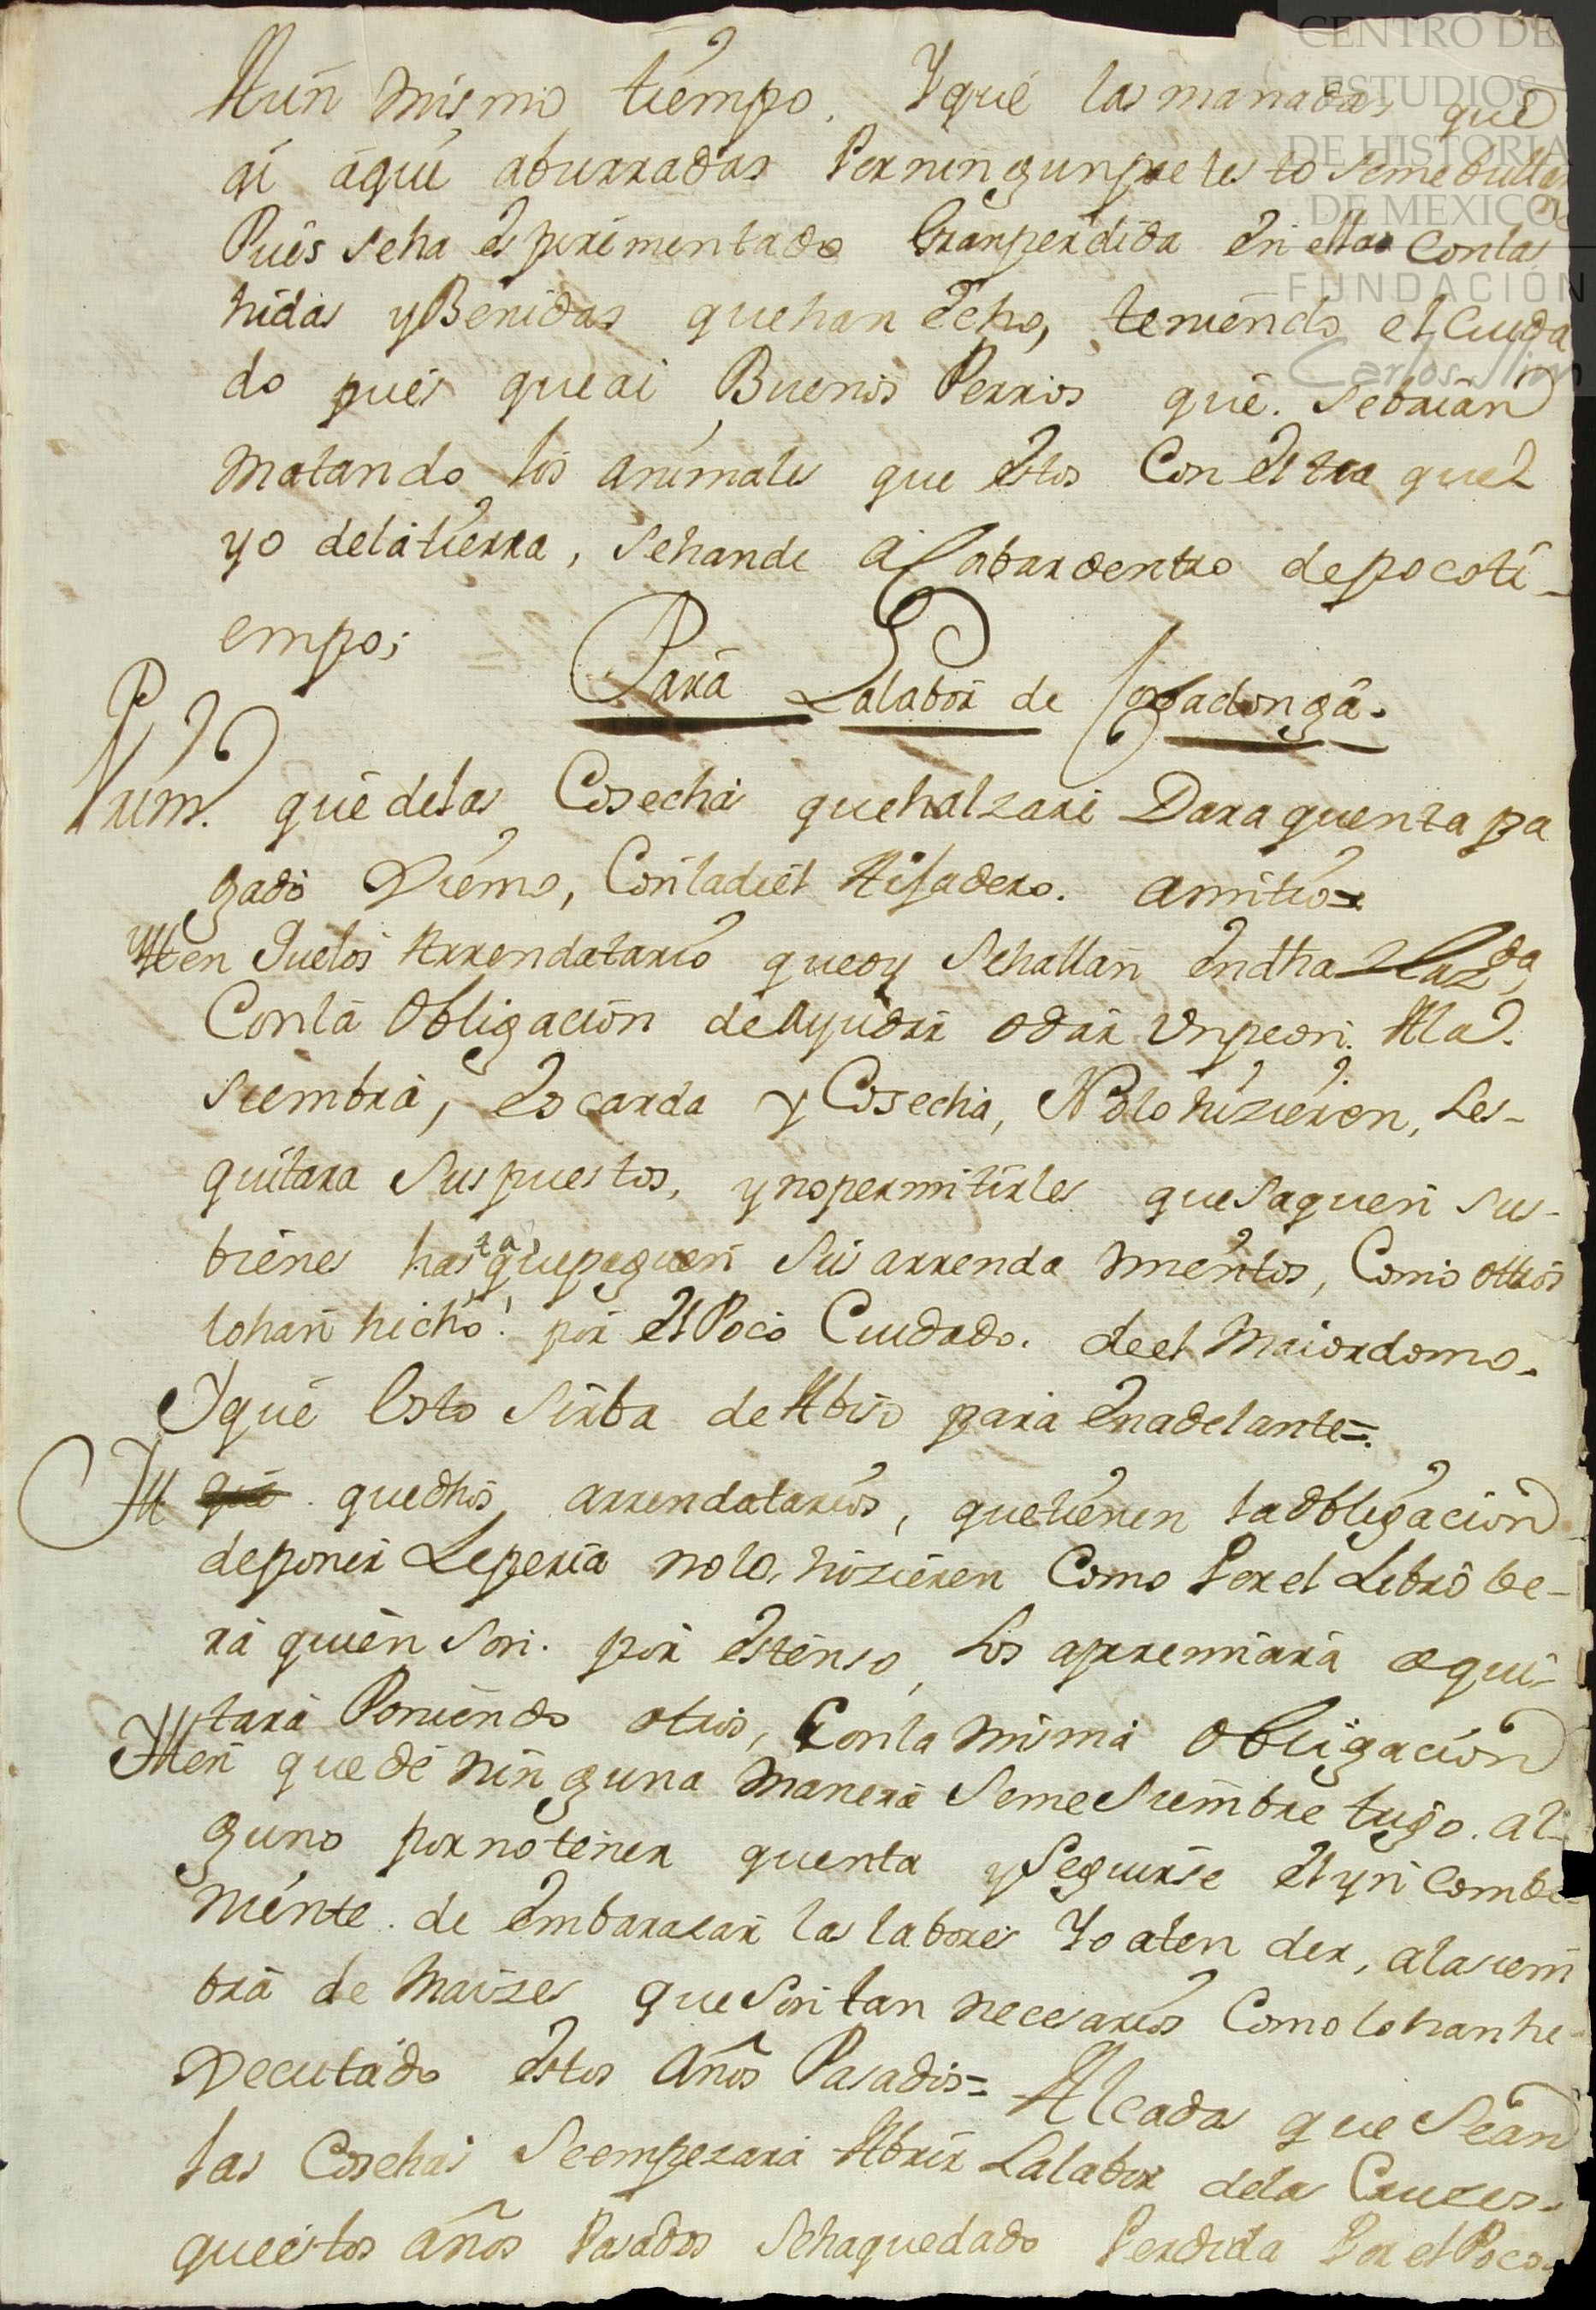 CENTRO DE
ESTUDIOS
DE HISTORIA
DE MEXICO
FUNDACIÓN
Carlos Slim
Aun mismo tiempo. Yque las manadas que
ai aqui aburradas Porningunpretesto semedullan
Pues seha esperimentado Granperdida en ellas conlas
hidas yBenidas quehan echo, teniendo el Cuyda
do pues queai Buenos Perros que. Sebaian
matando los animales que estos Con el tra quel
yo delatierra, Sehande acabardentro depocoti-
empo;
Para Lalabor de Cobadonga.
Prim. que delas Cosechas quehalzare Dara quenta pa
gado Diemo, Conladiel Aisadero. amitio=
Yten Quelos Arrendatario queoy Sehallan Endha Hazda,
Conla Obligacion deAyudar odar Unpeon. Ala
Siembra, Escarda y Cosecha, Nolo hizieren, Les-
quitara Suspuestos, ynopermitirles queSaquen Sus-
bienes hasta quepaguen Sus arrenda mentos, Como ottros
lohan hecho. por el Poco Cuidado. deel Maiordomo.
Yque Esto Sirba deAbiso para Enadelante=.
Yt quedhos arrendatarios, quetienen laobligacion
deponer Leperia nolo, hizieren Como Porel Libro be-
ra quien Son. por estenso, Los apremiara oqui-
tara Poniendo otros, Conla misma Obligacion
Yten quede ninguna manera SemeSiembre trigo. al-
guno por notener quenta ySeguirse elyn Combe-
niente. de Embarazar las labores Yo aten der, alasiem
bra de Maizes queSon tan necesarios Como lohanhe-
xecutado estos Años Pasados= Alcada que Sean
las Cosehas Seempezara Abrir Lalabor dela Cruzes.
queestos años Pasados Sehaquedado Perdida Por el Poco